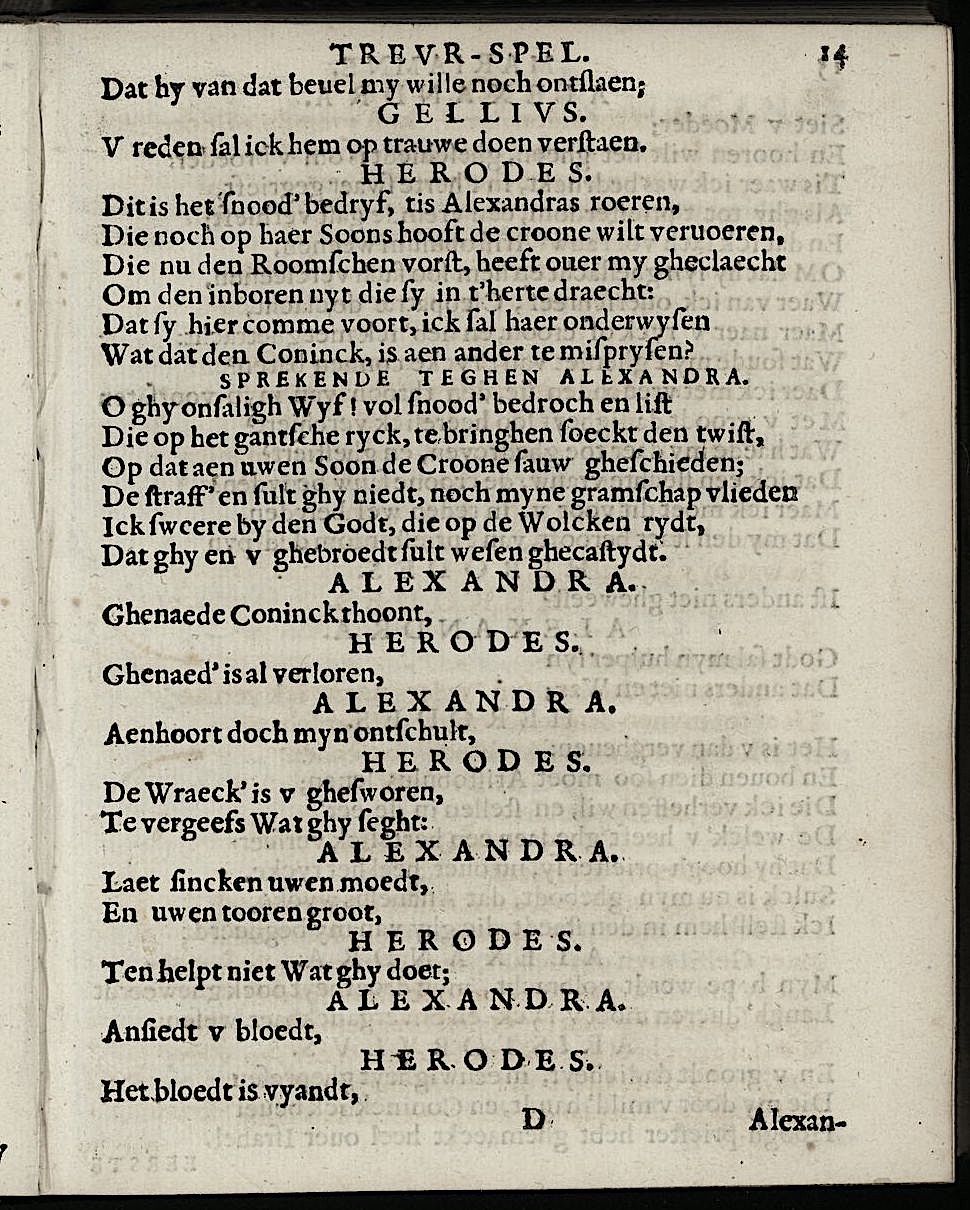 TREVR-SPEL. 14
Dat hy van dat beuel my wille noch ontſlaen;
GELLIVS.
V reden ſal ick hem op trauwe doen verſtaen.
HERODES.
Dit is het ſnood' bedryf, tis Alexandras roeren,
Die noch op haer Soons hooft de croone wilt veruoeren,
Die nu den Roomſchen vorſt, heeft ouer my gheclaecht
Om den inboren nyt die ſy in t'herte draecht:
Dat ſy hier comme voort, ick ſal haer onderwyſen
Wat dat den Coninck, is aen ander te miſpryſen?
SPREKENDE TEGHEN ALEXANDRA.
O ghy onſaligh Wyf! vol ſnood' bedroch en liſt
Die op het gantſche ryck, te bringhen ſoeckt den twiſt,
Op dat aen uwen Soon de Croone ſauw gheſchieden;
De ſtraff' en ſult ghy niedt, noch myne gramſchap vlieden
Ick ſweere by den Godt, die op de Wolcken rydt,
Dat ghy en v ghebroedt ſult weſen ghecaſtydt.
ALEXANDRA.
Ghenaede Coninck thoont,
HERODES.
Ghenaed' is al verloren,
ALEXANDRA.
Aenhoort doch myn ontſchult,
HERODES.
De Wraeck' is v gheſworen,
Te vergeefs Wat ghy ſeght:
ALEXANDRA.
Laet ſincken uwen moedt,
En uwen tooren groot,
HERODES.
Ten helpt niet Wat ghy doet;
ALEXANDRA.
Anſiedt v bloedt,
HERODES.
Het bloedt is vyandt,
D Alexan-